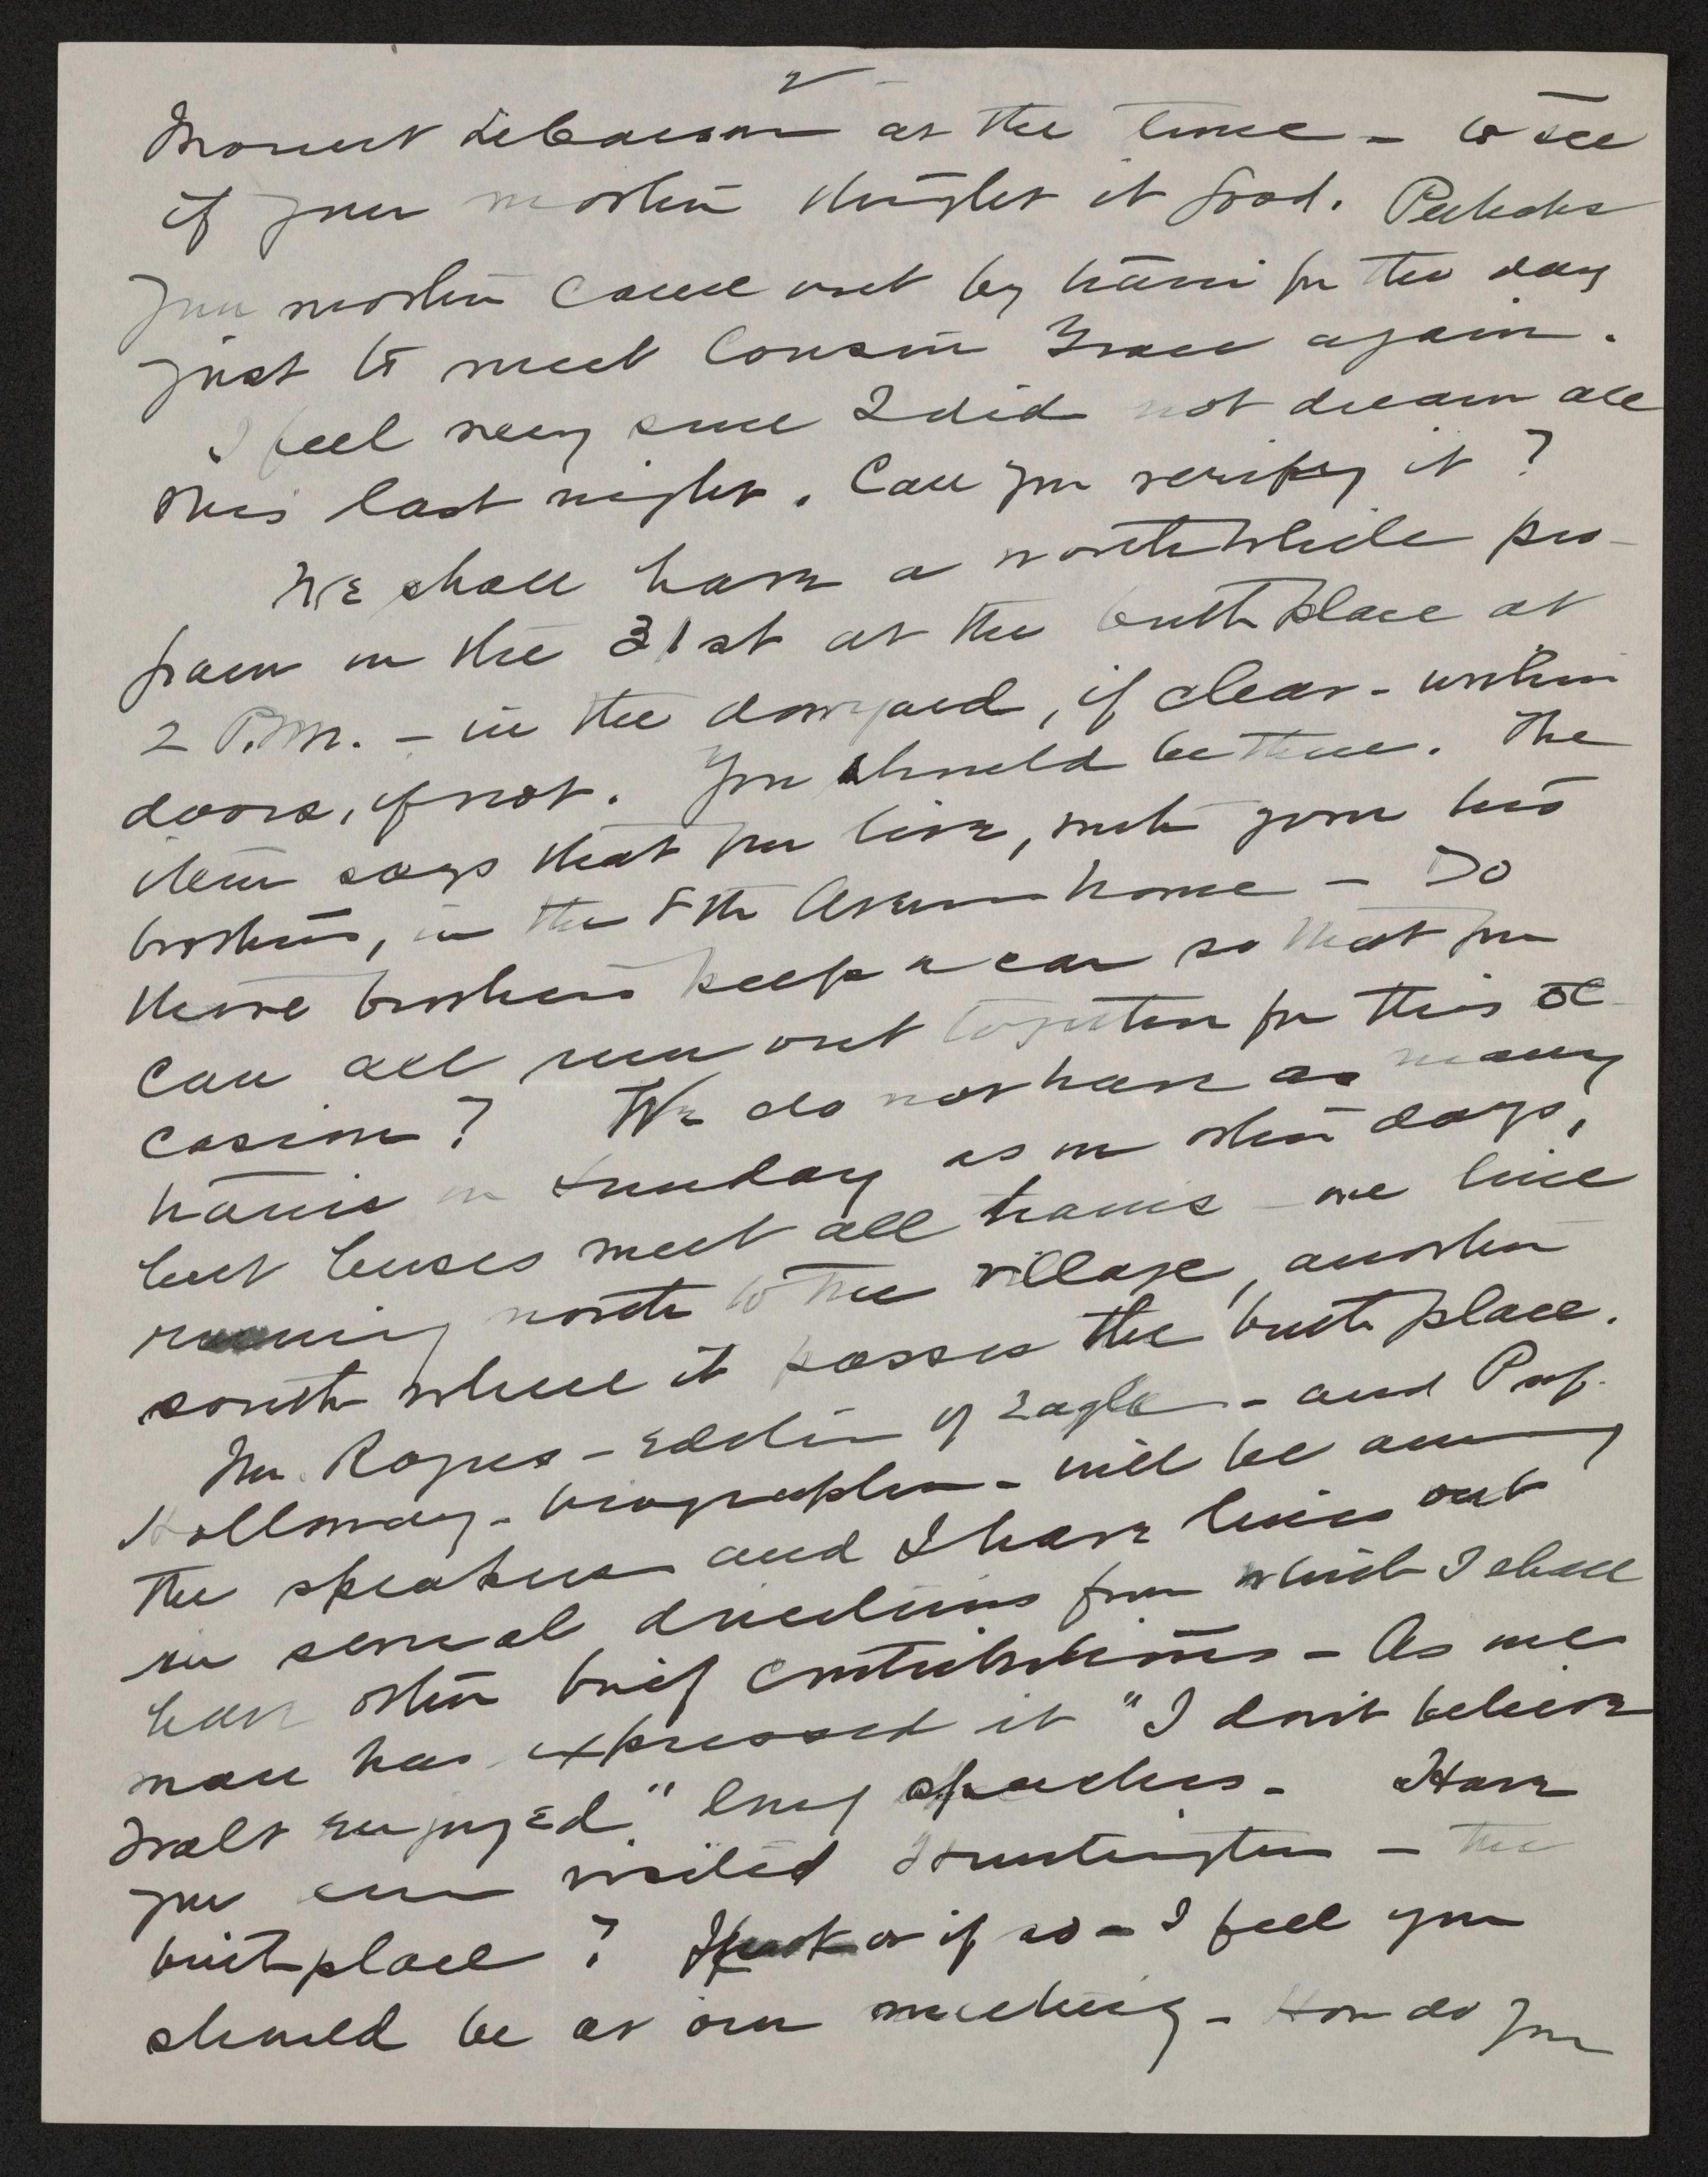 2 -
Mount Lebanon at the time - to see
if your mother thought it good. Perhaps
your mother came out by train for the day
just to meet Cousin Grace again.
I feel very sure I did not dream all
this last night. Can you verify it?
We shall have a worthwhile pro-
gram on the 31st at the birthplace at
2 P.M. - in the dooryard, if clear - within
doors, if not. You should be there. The
item says that you live, with your two
brothers, in the 8th Avenue home - Do
these brothers keep a car so that you
can all run out together for this oc-
casion? We do not have as many
trains on Sunday as on other days,
but buses meet all trains - one line
running north to the village, another
south where it passes the birthplace.
Mr. Ropes - Editor of Eagle - and Prof.
Holloway - biographer - will be among
the speakers and I have lines out
in several directions from which I shall
have other brief contributions - As one
man has expressed it "I don't believe
Walt enjoyed" long speeches - Have
you ever visited Huntington - the
birthplace? If not or if so - I feel you
should be at our meeting - How do you